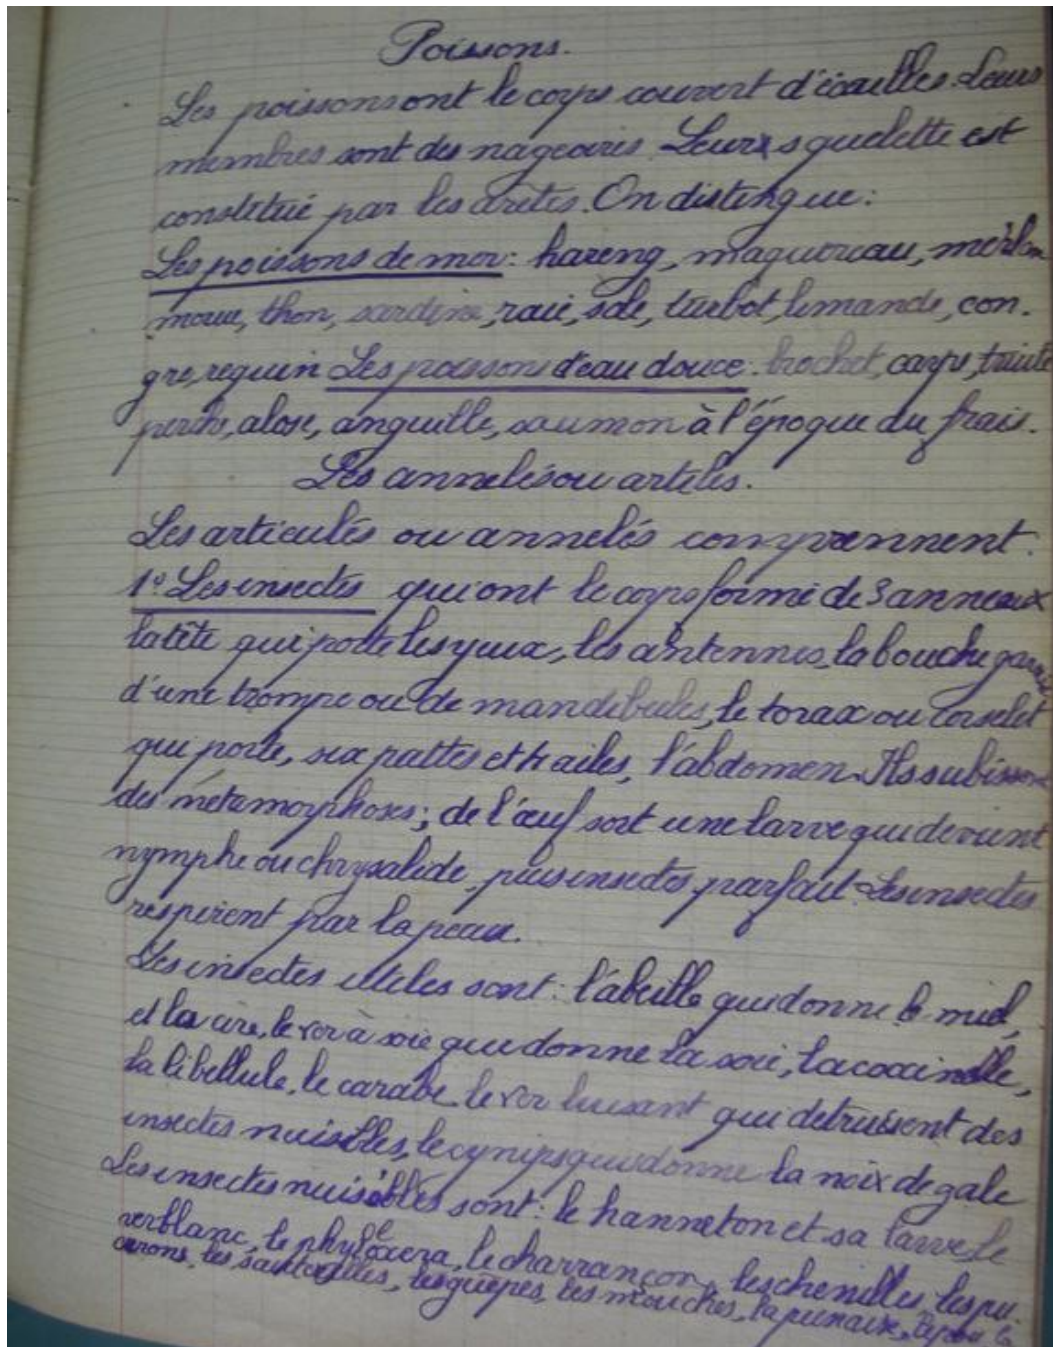 Poissons.
Les poissons ont le corps couvert d'écailles. Leurs
membres sont des nageoires. Leur squelette est
constitué par les arêtes. On distingue :
Les poissons de mer : hareng, maquereau, merlan
morue, thon, sardine, raie, sole, turbot, limande, con.
gre, requin Les poissons d'eau douce : brochet, carpe, truite
perche, alose, anguille, saumon à l'époque du frais.
Les annelés ou articles.
Les articulés ou annelés comprennent.
1° Les insectes qui ont le corps formé de 3 anneaux
la tête qui porte les yeux, les antennes, la bouche garnie
d'une trompe ou de mandibules, le torax ou corselet
qui porte, six pattes et ailes, l'abdomen. Ils subissent
des métamorphoses; de l'œuf sort une larve qui devient
nymphe ou chrysalide, puis insectes parfait. Les insectes
respirent par la peau.
Les insectes utiles sont : l'abeille qui donne le miel,
et la cire, le ver à soie qui donne la soie, la coccinelle,
la libellule, le carabe, le ver luisant qui detruisent des
insectes nuisibles, le cynips qui donne la noix de gale
Les insectes nuisibles sont : le hanneton et sa larve le
ver blanc, le phylloxera, le charrançon, les chenilles, les pu.
cerons, les sauterelles, les guêpes, les mouches, la punaise, le pou, la